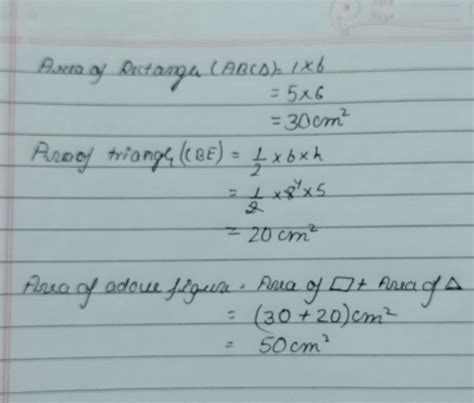 Area of Rectangle (ABCD) = l × b
= 5×6
= 30cm²
Area of triangle (CBE) = 1/2 × b × h
= 1/2 × 8 4 × 5
= 20 cm²
Area of adove figure = Area of □ + Area of △
= (30 + 20) cm²
= 50cm²